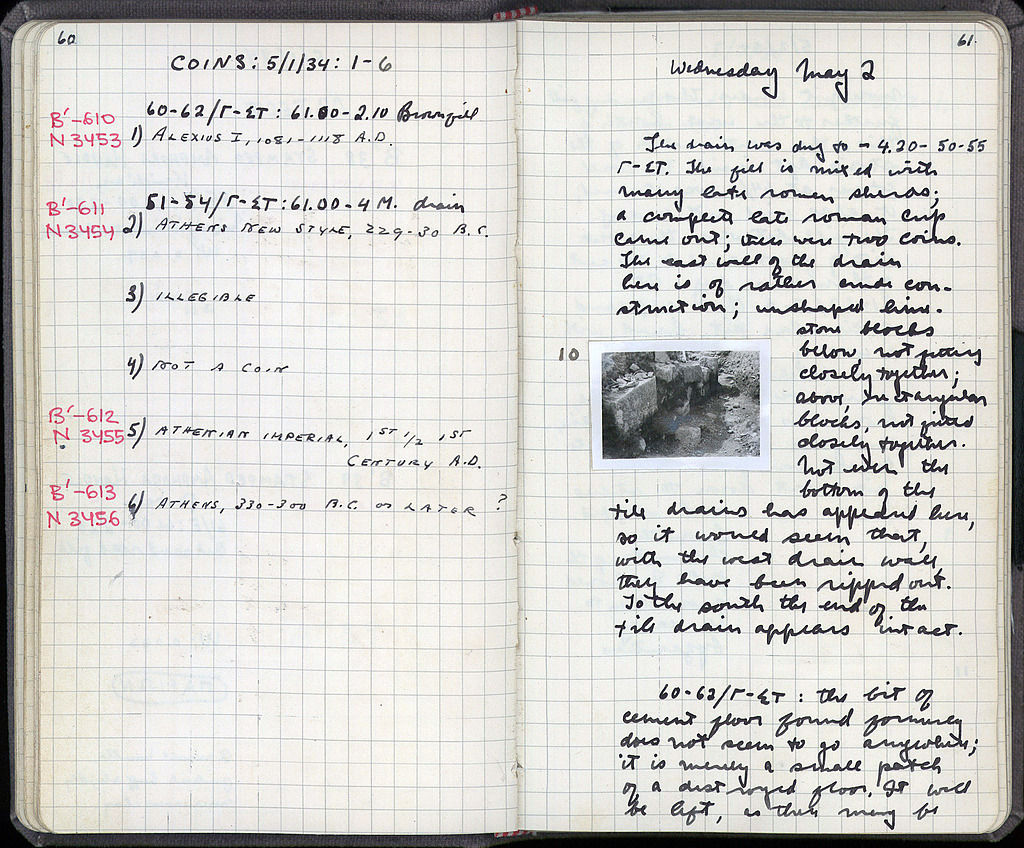 60
COINS: 5/1/34: 1-6
60-62/Γ-ΣΤ: 61.00-2.10 Brown fill
B'-610
N 3453 1) ALEXIUS I, 1081-1118 A.D.
51-54/Γ-ΣΤ: 61.00-4 M. drain
B'-611
N 3454 2) ATHENS NEW STYLE, 229-30 B.C.
3) ILLEGIBLE
4) NOT A COIN
B'-612
N 3455 5) ATHENIAN IMPERIAL, 1ST 1/2 1ST
CENTURY A.D.
B'-613
N 3456 6) ATHENS, 330-300 B.C. OR LATER ?
61
Wednesday May 2
The drain was dug to - 4.20 - 50-55
Γ-ΣΤ. The fill is mixed with
many late roman sherds;
a complete late roman cup
came out; there were two coins.
The east wall of the drain
here is of rather crude con-
struction; unshaped lime-
stone blocks
below, not fitting
closely together;
above, rectangular
blocks, not jointed
closely together.
Not even the
bottom of the
10
tile drains has appeared here,
so it would seem that,
with the west drain wall,
they have been ripped out.
To the south the end of the
tile drain appears intact.
60-62/Γ-ΣΤ: the bit of
cement floor found formerly
does not seem to go anywhere;
it is merely a small patch
of a destroyed floor. It will
be left, as there may be